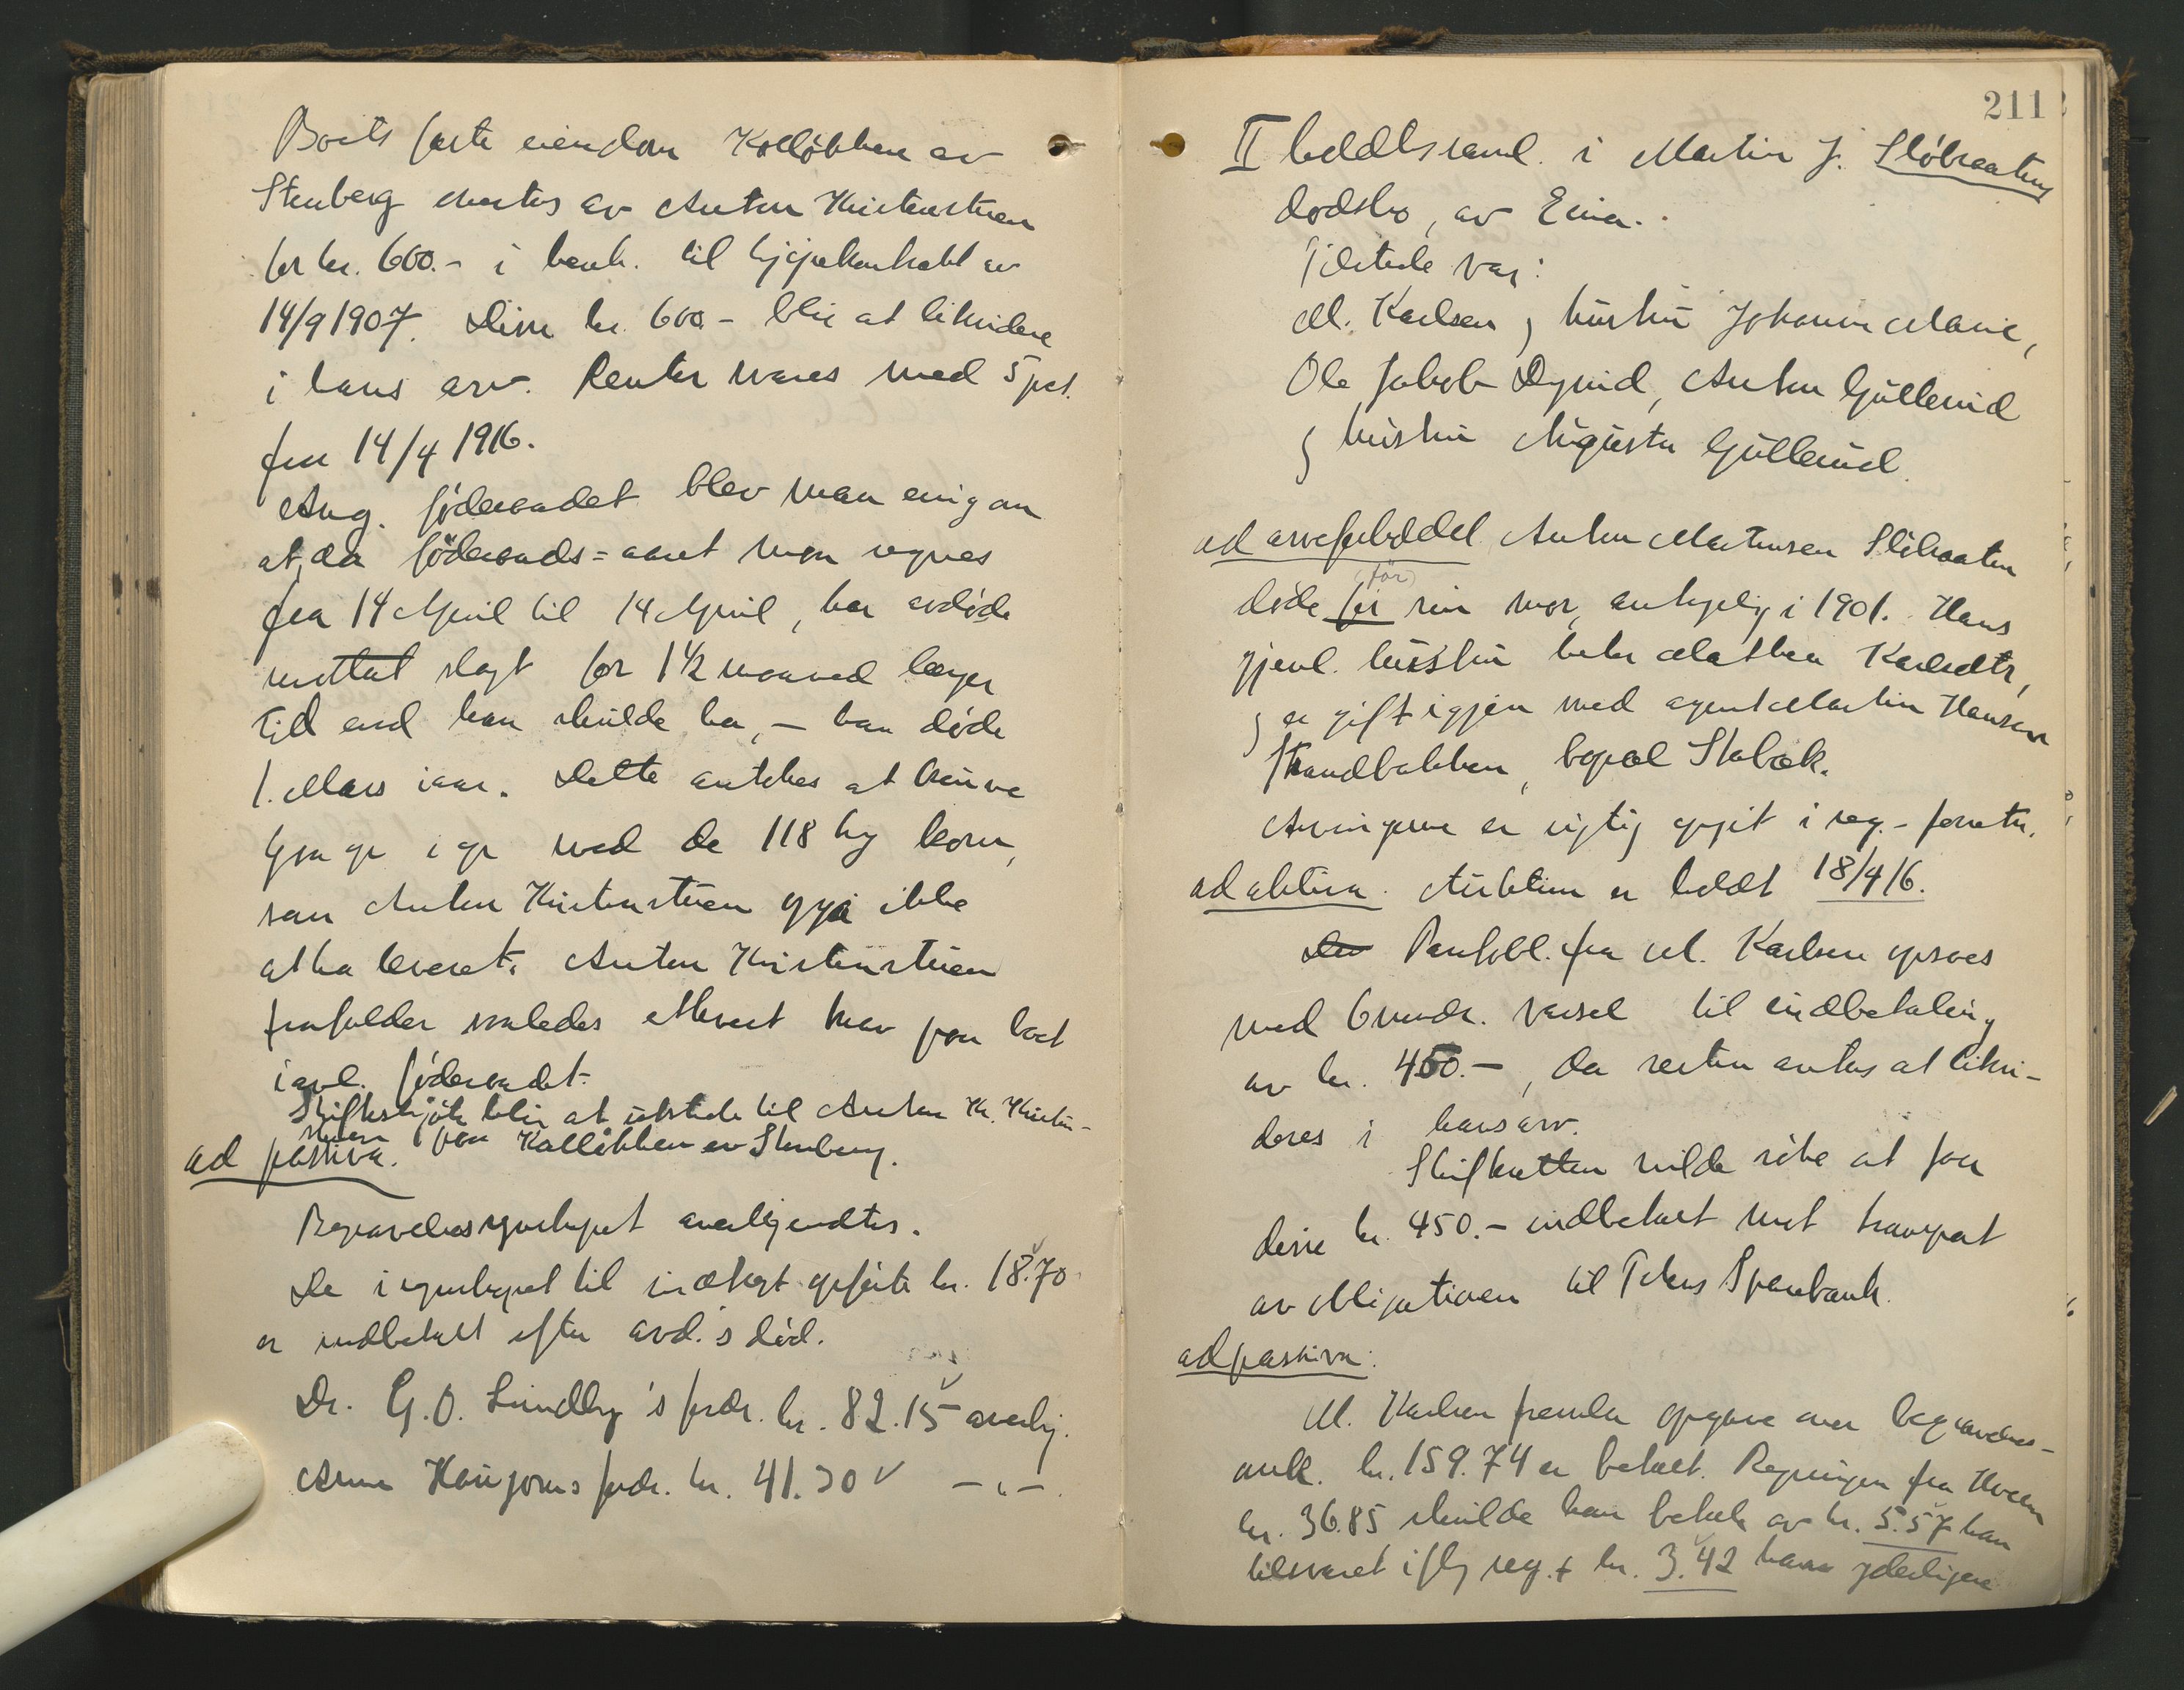 Boets faste eiendom Kolløkken av
Stenberg motas av Anton Kristenstuen
for kr. 600.- i henh. til kjøpekontrakt av
14/9 1907. Disse kr. 600.- blir at likvidere
i hans arv. Renter svares med 5 pct.
fra 14/4 1916.
Ang. föderaadet blev man enig om
at, da föderaads=aaret maa regnes
fra 14 April til 14 April, har avdøde
mottat slagt for 1½ maaned længer
tid end han skulde ha, – han døde
1. Mars iaar. Dette antokes at kunne
gaa op i op med de 118 kg korn,
som Anton Kristenstuen opga ikke
at ha leveret. Anton Kristenstuen
frafalder saaledes ethvert krav paa boet
i anl. föderaadet.
Skifteskjøte blir at utstede til Anton K. Kristen-
stuen paa Kolløkken av Stenberg.
ad passiva.
Begravelsesregnskapet anerkjendtes.
De i regnskapet til indtægt opførte kr. 18.70
er indbetalt efter avd.'s død.
Dr. G. O. Lundby's fordr. kr. 82.15 anerkj.
Arne Haugoms fordr. kr. 41.30 – " –.
211
II behdlsraml. i Martin J. Slåbraatens
dødsbo, av Eina.
Tilstede var:
M. Karlsen og hustru Johanne Marie,
Ole Jakob Dyrud, Anton Gullerud
og hustru Augusta Gullerud.
ad arveforholdet Anton Martinsen Slåbraaten
(før)
døde før sin mor, antagelig i 1901. Hans
gjenl. hustru heter Mathea Karlsdtr,
og er gift igjen med agent Martin Hansen
Strandbakken, bopæl Stabæk.
Arvingerne er rigtig opgit i reg.-forretn.
ad aktiva. Auktion er holdt 18/4 16.
Den Pantobl. fra M. Karlsen opsaes
med 6 mndr. varsel til indbetaling
av kr. 450.–, da resten antas at likvi-
deres i hans arv.
Skifteretten vilde søke at faa
disse kr. 450.– indbetalt mot transport
av obligationen til Totens Sparebank.
ad passiva:
M. Karlsen fremla opgave over begravelses-
omk. kr. 159.74 er betalt. Regningen fra
kr. 36.85 skulde han betale av kr. 5.57 han
tilsvaret ifølg reg. + kr. 3.42 han yderligere